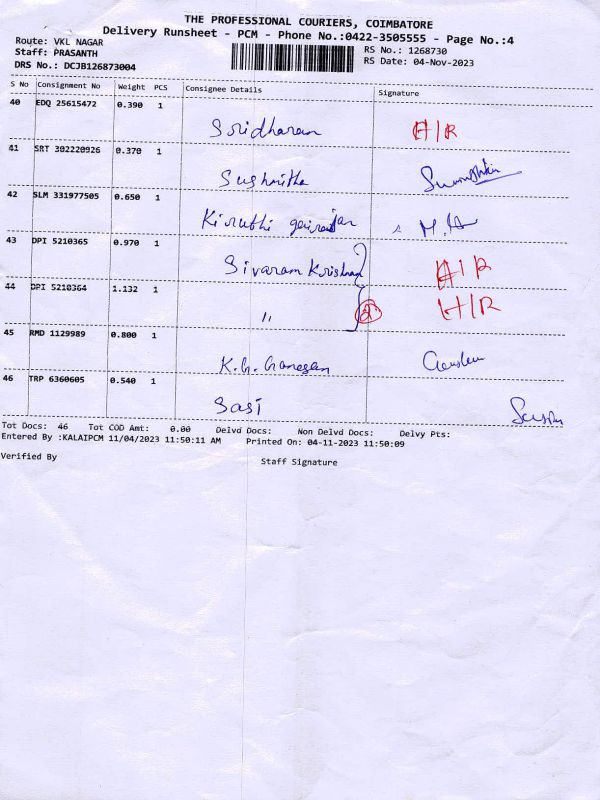 THE PROFESSIONAL COURIERS, COIMBATORE
Delivery Runsheet - PCM - Phone No.:0422-3505555 - Page No.:4
Route: VKL NAGAR
Staff: PRASANTH
DRS No.: DCJB126873004
RS No.: 1268730
RS Date: 04-Nov-2023
S No Consignment No Weight PCS Consignee Details Signature
40 EDQ 25615472 0.390 1
Sridharan H/R
41 SRT 302220926 0.370 1
Sushmitha
42 SLM 331977505 0.650 1
Kiruthi
43 DPI 5210365 0.970 1
Sivaram Krishnan H/R
44 DPI 5210364 1.132 1
" H/R
45 RMD 1129989 0.800 1
K.G. Ganesan
46 TRP 6360605 0.540 1
Sasi
Tot Docs: 46 Tot COD Amt: 0.00 Delvd Docs: Non Delvd Docs: Delvy Pts:
Entered By :KALAIPCM 11/04/2023 11:50:11 AM Printed On: 04-11-2023 11:50:09
Verified By Staff Signature